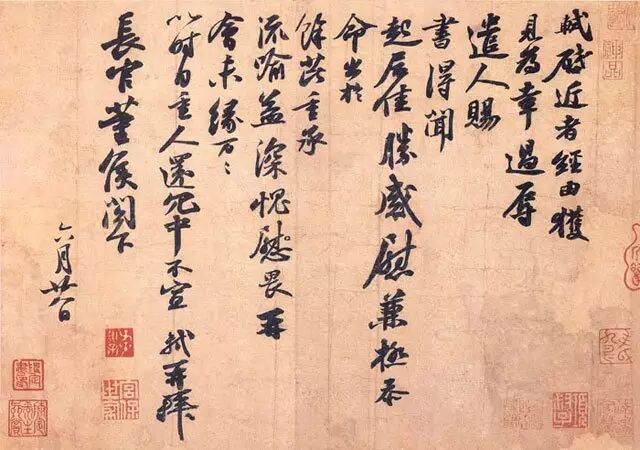 軾啟近者經由獲
見為幸過辱
遣人賜
書得聞
起居佳勝感慰兼極忝
命出於
餘芘重承
流喻益深愧慰畏再
會未緣萬〻
以時自重人還冗中不宣 軾再拜
長官董侯閣下
六月廿八日